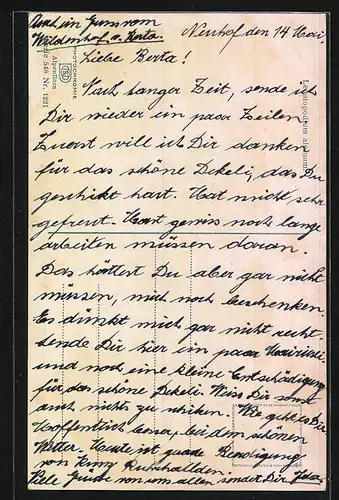 Auch ein Gruss vom
Wildenhof u. Berta.
Neuhof den 14 Mai.
Liebe Berta!
Nach langer Zeit, sende ich
Dir wieder ein paar Zeilen
Zuerst will ich Dir danken
für das schöne Dekeli, das Du
geschikt hast. Hat mich sehr
gefreut. Hast gewiss noch lange
arbeiten müssen daran.
Das hättest Du aber gar nicht
müssen, mich noch beschenken.
Es dünkt mich gar nicht recht
sende Dir hier ein paar
und noch eine kleine Entschädigung
für das schöne Dekeli. Weiss Dir sonst
auch nichts zu schiken. Wie geht es Dir
Hoffentlich besser, bei dem schönen
Wetter. Heute ist grade Beerdigung
von
Viele Grüsse von uns allen sendet Dir
PHOTOCHROMIE
Serie 548 Nr. 1221
Alpenflora
Leontopodium alpinum